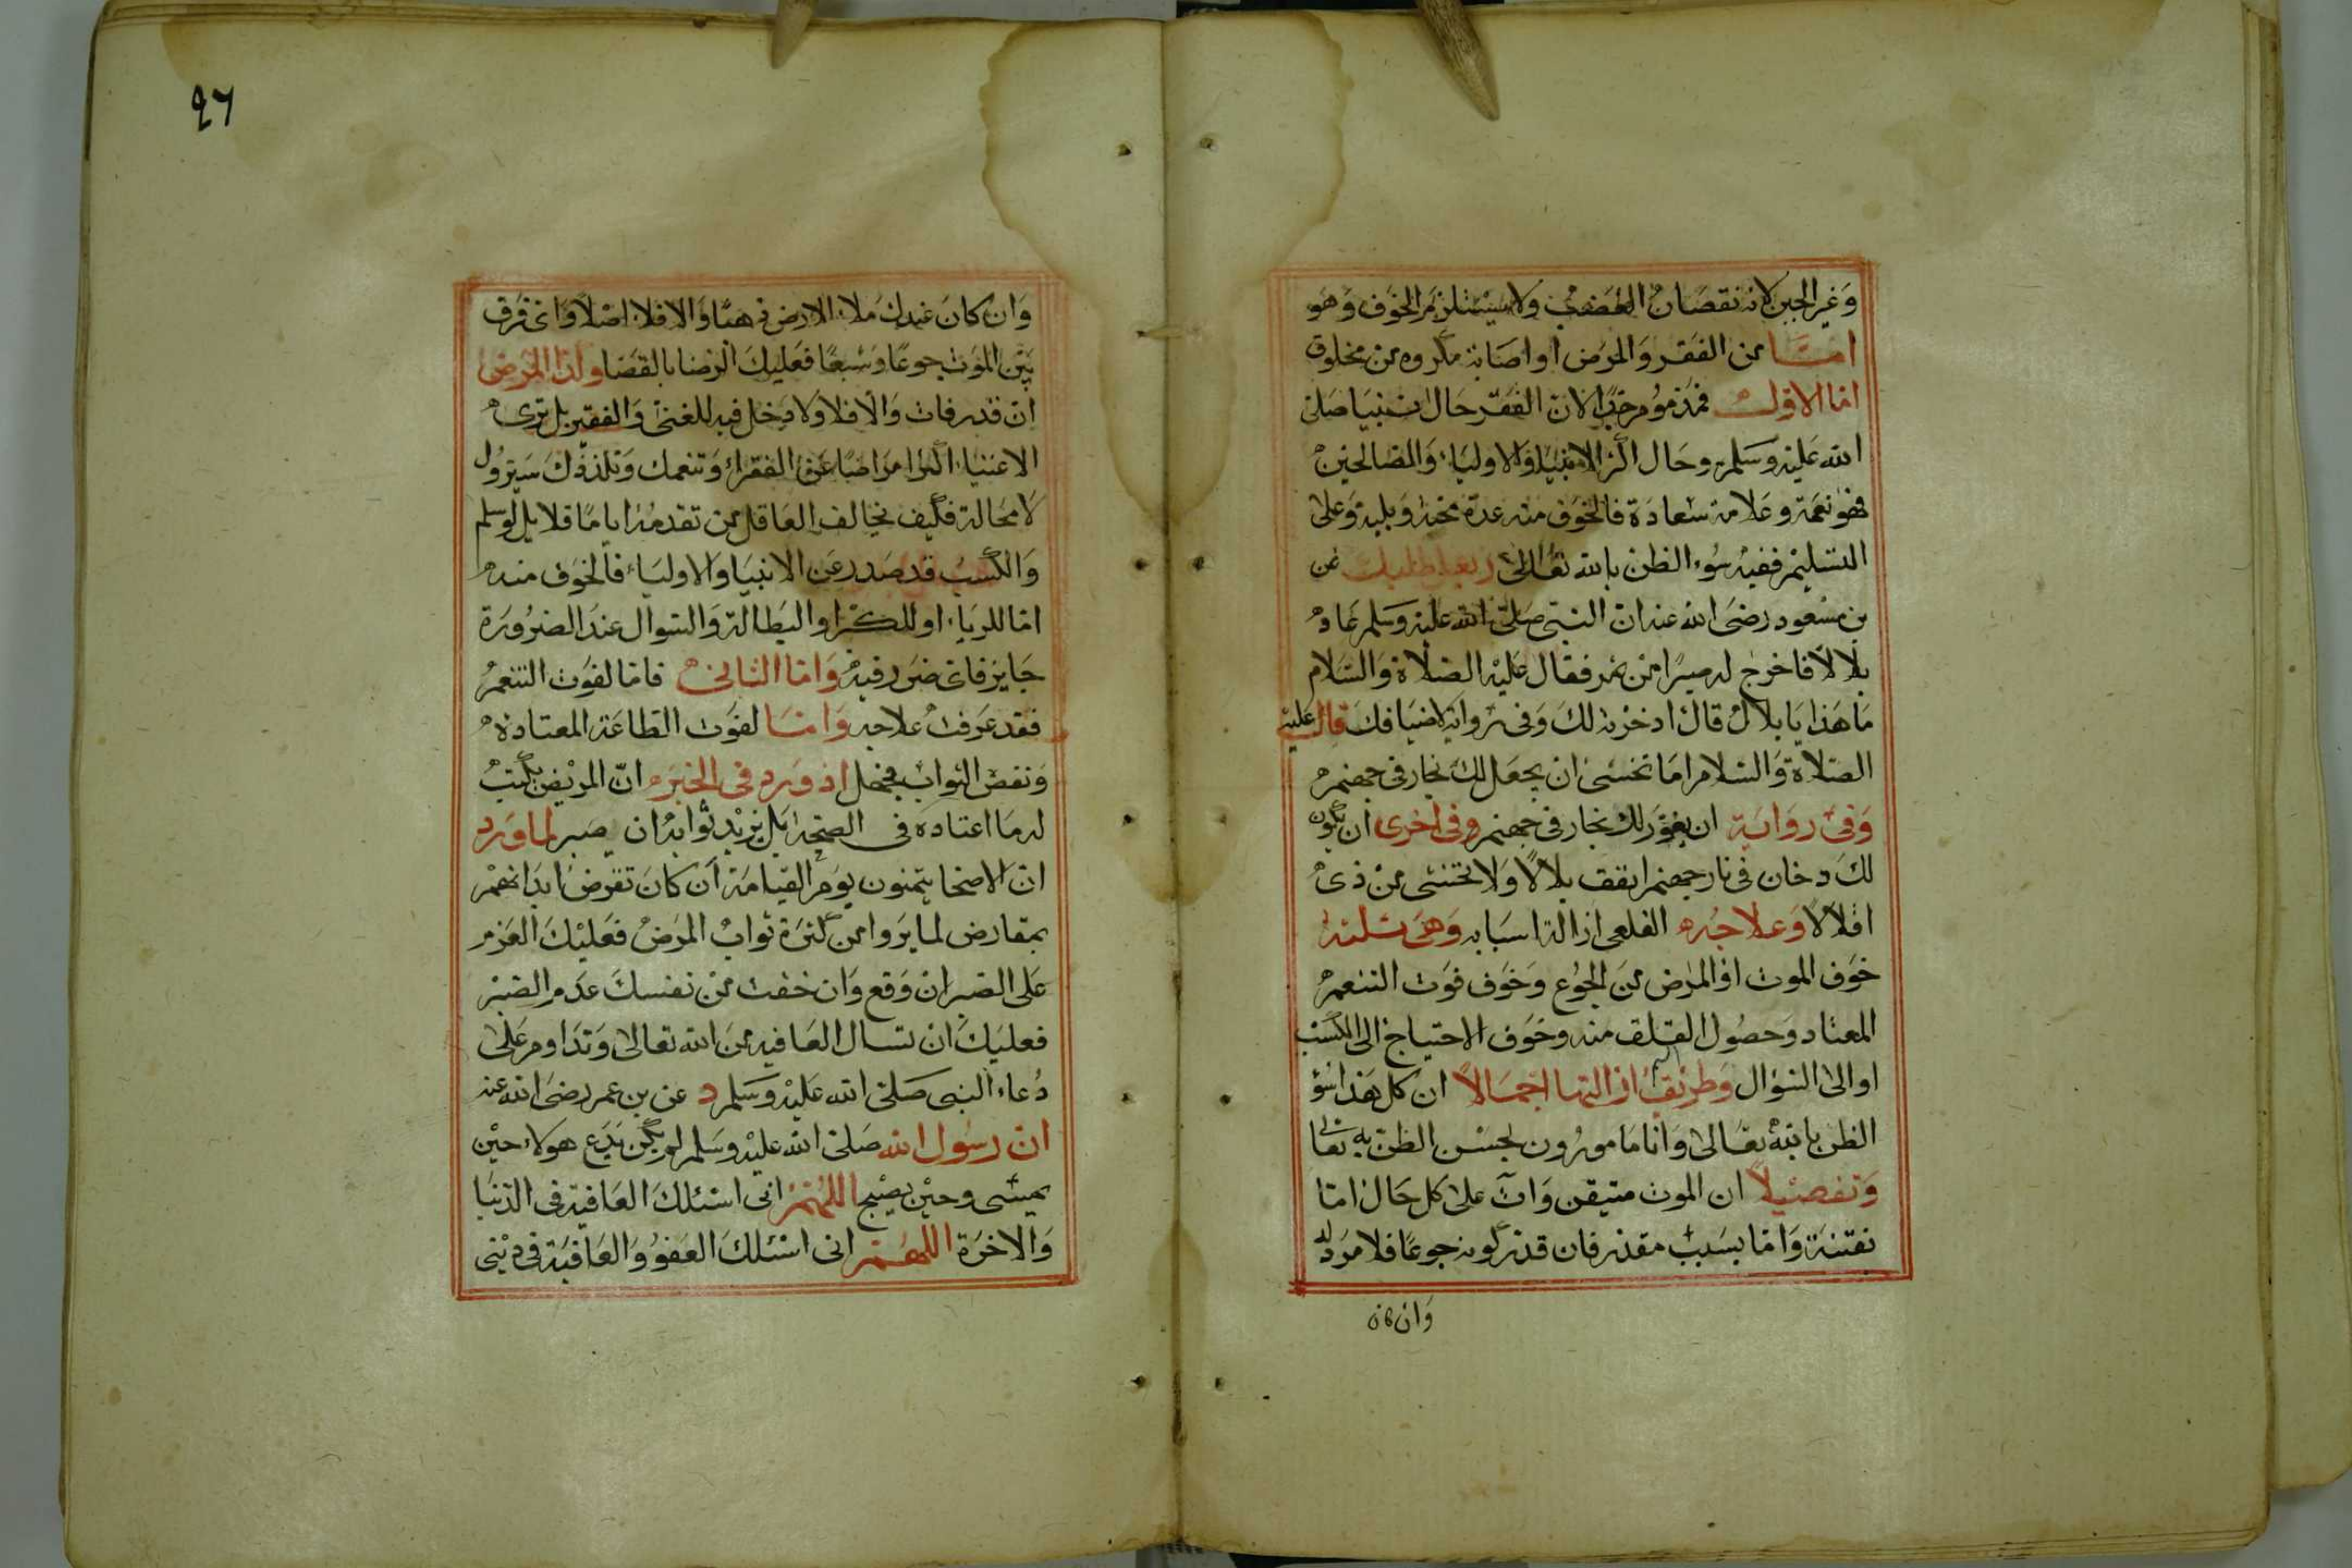 وَغير الجبن لانه نقصان الغضب ولا يستلزم الخوف وهو
امّا من الفقر والمرض او اصابة مكروه من مخلوق
امّا الاوّل فمذموم جدًّا لان الفقر حال نبينا صلى
الله عليه وسلم وحال اكثر الانبياء والاولياء والصالحين
فهو نعمة وعلامة سعادة فالخوف منه عدّه محنة وبلية وعلى
التسليم ففيه سوء الظن بالله تعالى عن
بن مسعود رضى الله عنه ان النبى صلى الله عليه وسلم عاد
بلالا فاخرج له صبرًا من تمر فقال عليه الصلاة والسلام
ما هذا يا بلال قال ادخرته لك وفى رواية لاضيافك قال عليه
الصلاة والسلام اما تخشى ان يجعل لك بخار فى جهنم
وفى رواية ان يفور لك بخار فى جهنم وفى اخرى ان يكون
لك دخان فى نار جهنم انفق بلالا ولا تخشى من ذى
اقلالا وعلاجه القلعى ازالة اسبابه وهى ثلثة
خوف الموت او المرض من الجوع وخوف فوت التنعم
المعتاد وحصول القلق منه وخوف الاحتياج الى الكسب
او الى السؤال وطريق ازالتها اجمالاً ان كل هذا سؤ
الظن بالله تعالى وانا مامورون بحسن الظن به تعالى
وتفصيلاً ان الموت متيقن وآت على كل حال امّا
بغتة وامّا بسبب مقدر فان قدر كونه جوعًا فلا مرد له
وان كان
٤٦
وان كان عندك ملاء الارض ذهبًا والا فلا اصلا واى فرق
بين الموت جوعًا وشبعًا فعليك الرضا بالقضا ولذا المرض
ان قدر فات والا فلا ولا دخل فيه للغنى والفقير بل ترى
الاغنياء اكثر امراضًا عن الفقراء وتنعمك وتلذذك سيزول
لا محالة فكيف يخالف العاقل من تقدمه اياما قلايل لو سلم
والكسب قد صدر عن الانبيا والاولياء فالخوف منه
امّا للرياء او للكبر او البطالة والسوال عند الضرورة
جايز فاى ضرر فيه وامّا الثانى فامّا لفوت التنعم
فقد عرفت علاجه وامّا لفوت الطاعة المعتادة
ونقص الثواب فجهل اذ ورد فى الخبر انّ المريض يكتب
له ما اعتاده فى الصحة بل يزيد ثوابه ان صبر لما ورد
ان الاصحا يتمنون يوم القيامة ان كان تقرض ابدانهم
بمقارض لما يروا من كثرة ثواب المرض فعليك العزم
على الصبر ان وقع وان خفت من نفسك عدم الصبر
فعليك ان تسال العافيه من الله تعالى وتداوم على
دعاء النبى صلى الله عليه وسلم د عن بن عمر رضى الله عنه
ان رسول الله صلى الله عليه وسلم لم يكن يدع هولاء حين
يمسى وحين يصبح اللهم انى اسئلك العافية فى الدنيا
والاخرة اللهم انى اسئلك العفو والعافية فى دينى